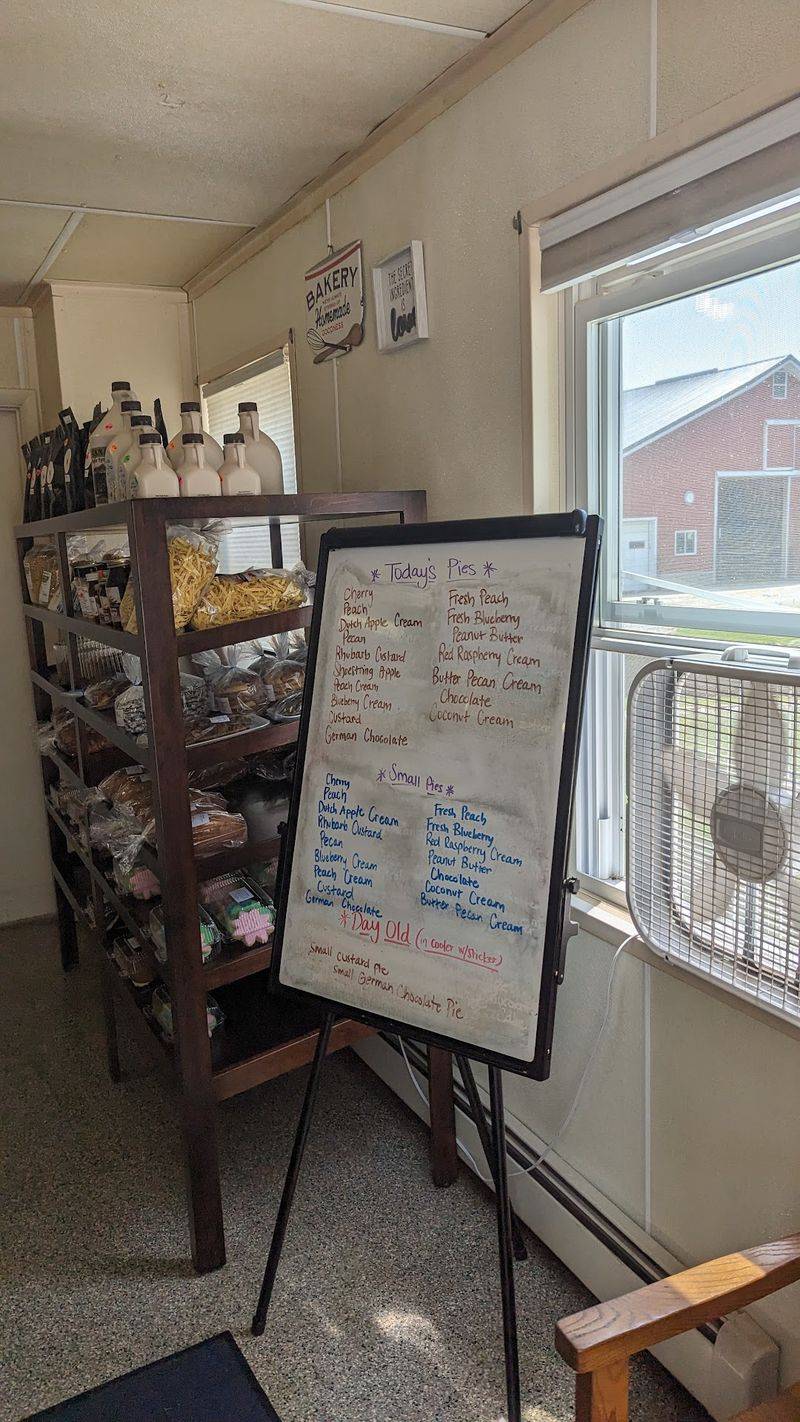 BAKERY
Homemade
GOODNESS
THE SECRET
INGREDIENT
IS
Love
* Today's Pies *
Cherry
Peach
Dutch Apple Cream
Pecan
Rhubarb Custard
Shoestring Apple
Peach Cream
Blueberry Cream
Custard
German Chocolate
Fresh Peach
Fresh Blueberry
Peanut Butter
Red Raspberry Cream
Butter Pecan Cream
Chocolate
Coconut Cream
* Small Pies *
Cherry
Peach
Dutch Apple Cream
Rhubarb Custard
Pecan
Blueberry Cream
Peach Cream
Custard
German Chocolate
Fresh Peach
Fresh Blueberry
Red Raspberry Cream
Peanut Butter
Chocolate
Coconut Cream
Butter Pecan Cream
* Day Old (in cooler w/sticker)
Small Custard Pie
Small German Chocolate Pie